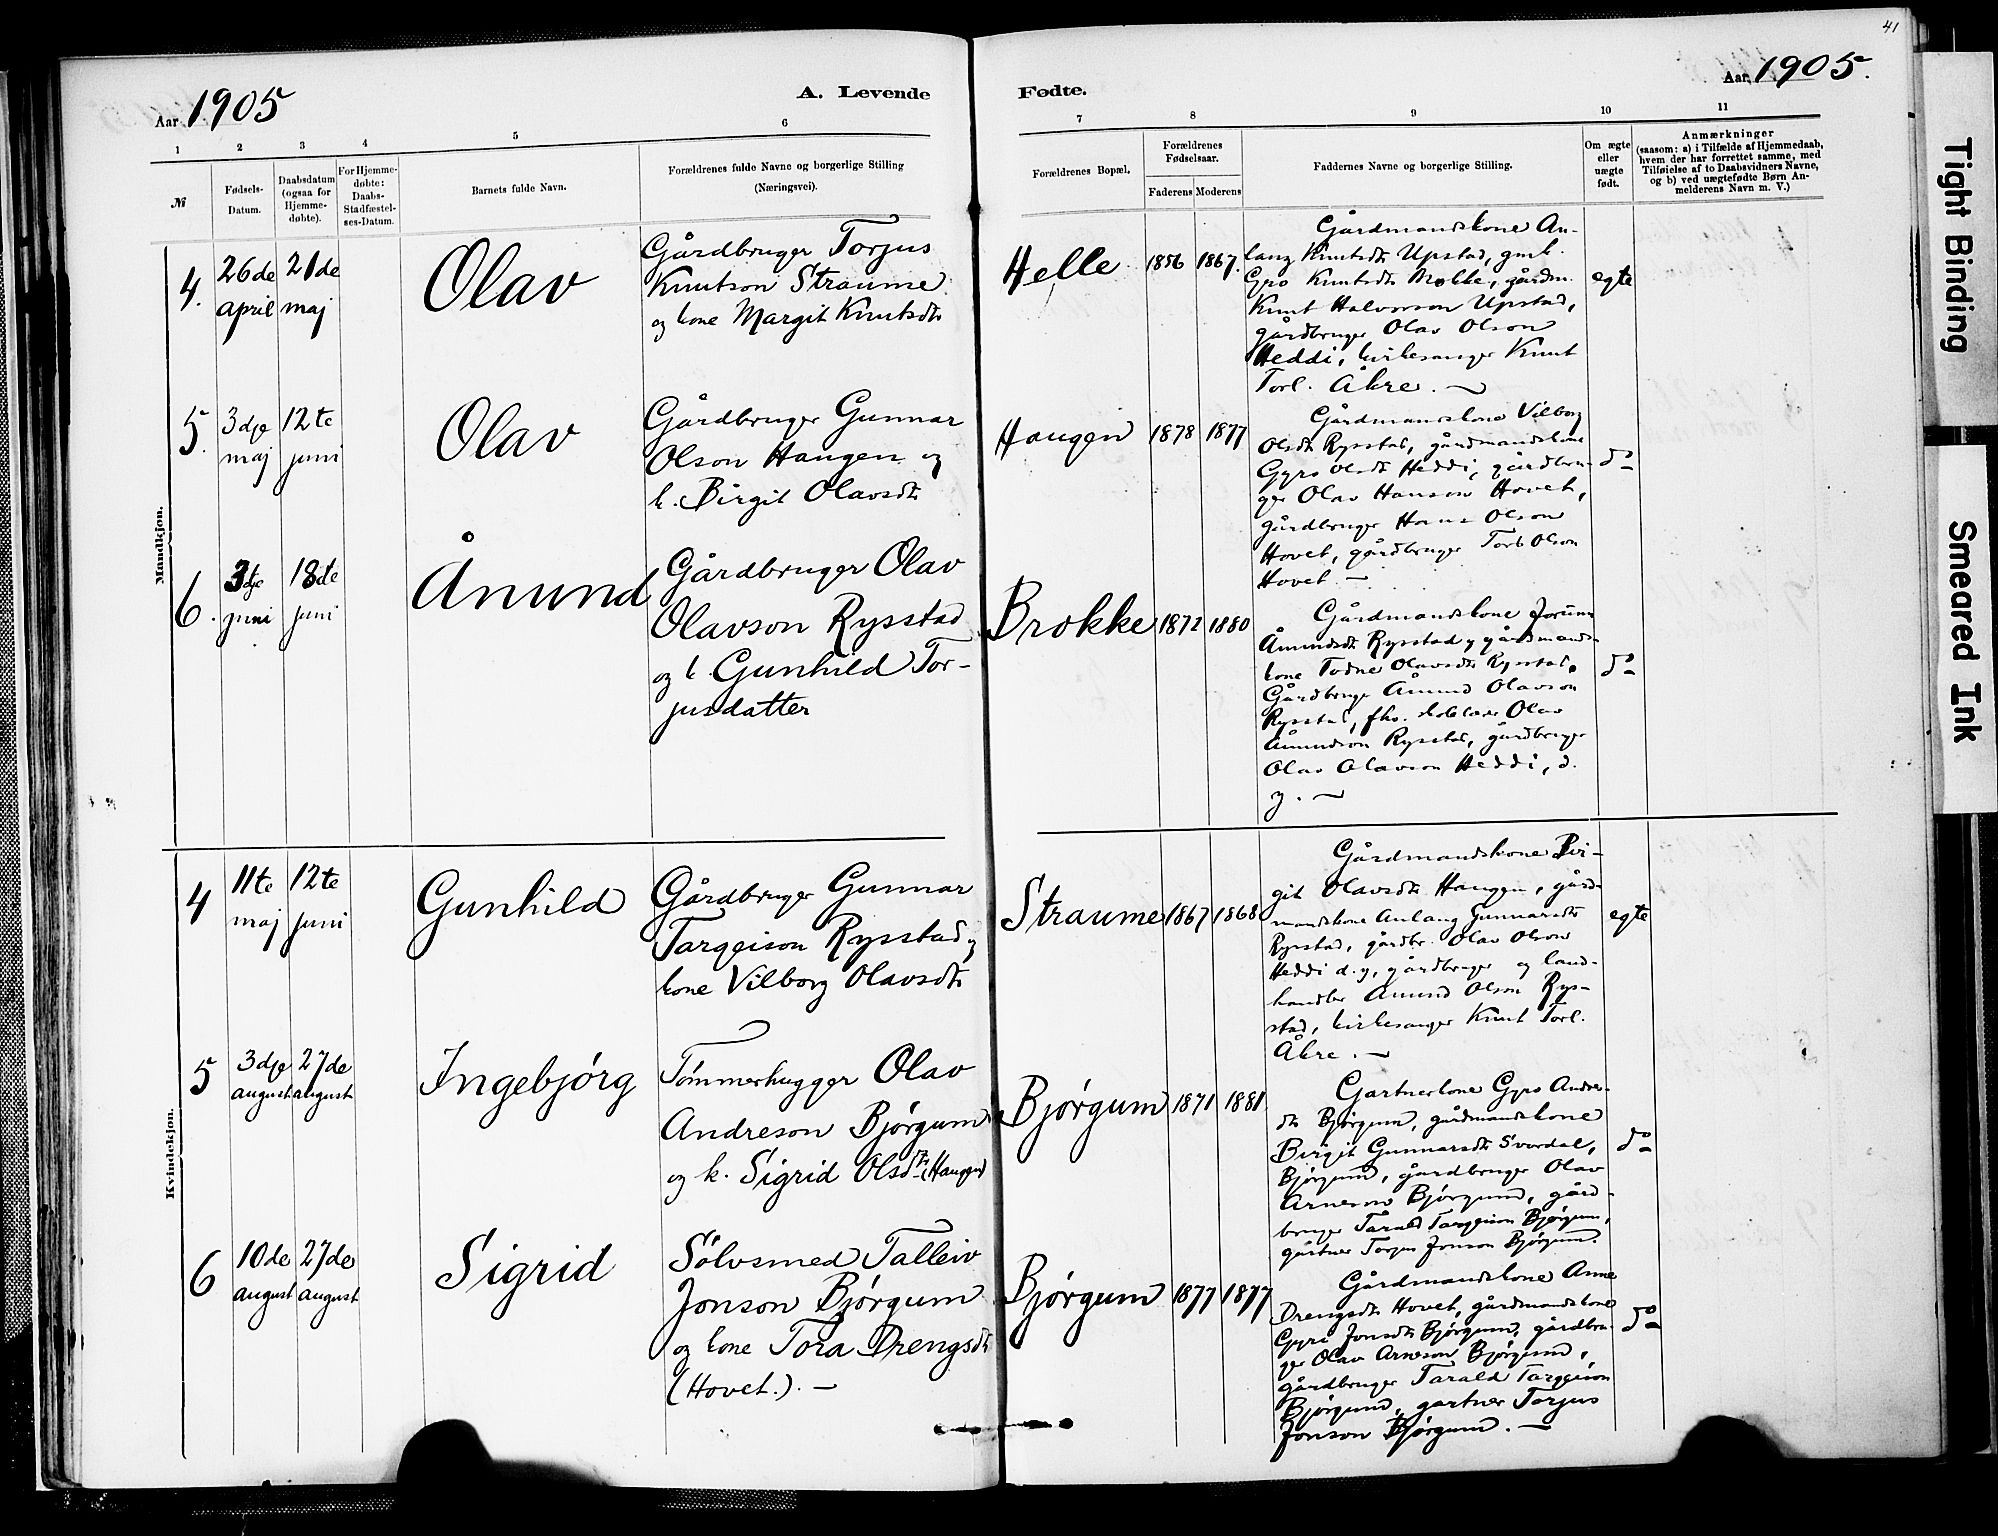 41
Aar 1905
A. Levende
Fødte.
Aar 1905.
1
2
3
4
5
6
7
8
9
10
11
№
Fødsels-
Datum.
Daabsdatum
(ogsaa for
Hjemme-
døbte).
For Hjemme-
døbte:
Daabs-
Stadfæstel-
ses-Datum.
Barnets fulde Navn.
Forældrenes fulde Navne og borgerlige Stilling
(Næringsvei).
Forældrenes Bopæl.
Forældrenes
Fødselsaar.
Faderens
Moderens
Faddernes Navne og borgerlige Stilling.
Om ægte
eller
uægte
født.
Anmærkninger
(saasom: a) i Tilfælde af Hjemmedaab,
hvem der har forrettet samme, med
Tilføielse af to Daabsvidners Navne,
og b) ved uægtefødte Børn An-
melderens Navn m. V.)
Mandkjøn.
4.
26de
april
21de
maj
Olav
Gårdbruger Torjus
Knutson Straume
og kone Margit Knutsdtr
Helle
1856
1867.
Gårdmandskone An-
laug Knutsdtr Upstad, gmk.
Gro Knutsdtr Mokke, gårdm.
Knut Halvorson Upstad,
gårdbruger Olav Olson
Heddi, kirkesanger Knut
Torl. Åkre. —
egte
5.
3dje
maj
12te
juni
Olav
Gårdbruger Gunnar
Olson Haugen og
k. Birgit Olavsdtr
Haugen
1878
1877
Gårdmandskone Vilborg
Olsdtr Rysstad, gårdmandskone
Gyro Olsdtr Heddi, gårdbru-
ger Olav Hanson Hovet,
gårdbruger Hans Olson
Hovet, gårdbruger Torb Olson
Hovet. —
do
6.
3dje
juni
18de
juni
Ånund
Gårdbruger Olav
Olavson Rysstad
og k. Gunhild Tor-
jusdatter
Brokke
1872
1880
Gårdmandskone Jorunn
Ånundsdtr Rysstad, gårdmands-
kone Todne Olavsdtr Rysstad,
Gårdbruge Ånund Olavson
Rysstad, fhv. Olav
Ånundson Rysstad, gårdbruger
Olav Olavson Heddi, d.
y. —
do
Kvindekjøn.
4
11te
maj
12te
juni
Gunhild
Gårdbruger Gunnar
Targeison Rysstad og
kone Vilborg Olavsdtr
Straume
1867
1868
Gårdmandskone Bir-
git Olavsdtr Haugen, gård-
mandskone Anlaug Gunnarsdtr
Rysstad, gårdbr. Olav Olson
Heddi d.y, gårdbruger og land-
handler Ånund Olson Rys-
stad, kirkesanger Knut Torl.
Åkre. —
egte
5
3dje
august
27de
august
Ingebjørg
Tømmerhugger Olav
Andreson Bjørgum
og k. Sigrid Olsdtr (Haugen)
Bjørgum
1871
1881
Gartnerkone Gyro Andres-
dtr Bjørgum, gårdmandskone
Birgit Gunnarsdtr Svardal,
Bjørgum, gårdbruger Olav
Arneson Bjørgum, gård-
bruger Tarald Targeison Bjørgum,
gartner Torjus Jonson Bjørgum.
do
6
10de
august
27de
august
Sigrid
Sølvsmed Talleiv
Jonson Bjørgum
og kone Tora Drengsdtr
(Hovet.). —
Bjørgum
1877
1877
Gårdmandskone Anne
Drengsdtr Hovet, gårdmandskone
Gyro Jonsdtr Bjørgum, gårdbru-
ger Olav Arneson Bjørgum,
gårdbruger Tarald Targeison
Bjørgum, gartner Torjus
Jonson Bjørgum. —
do
Tight Binding
Smeared Ink